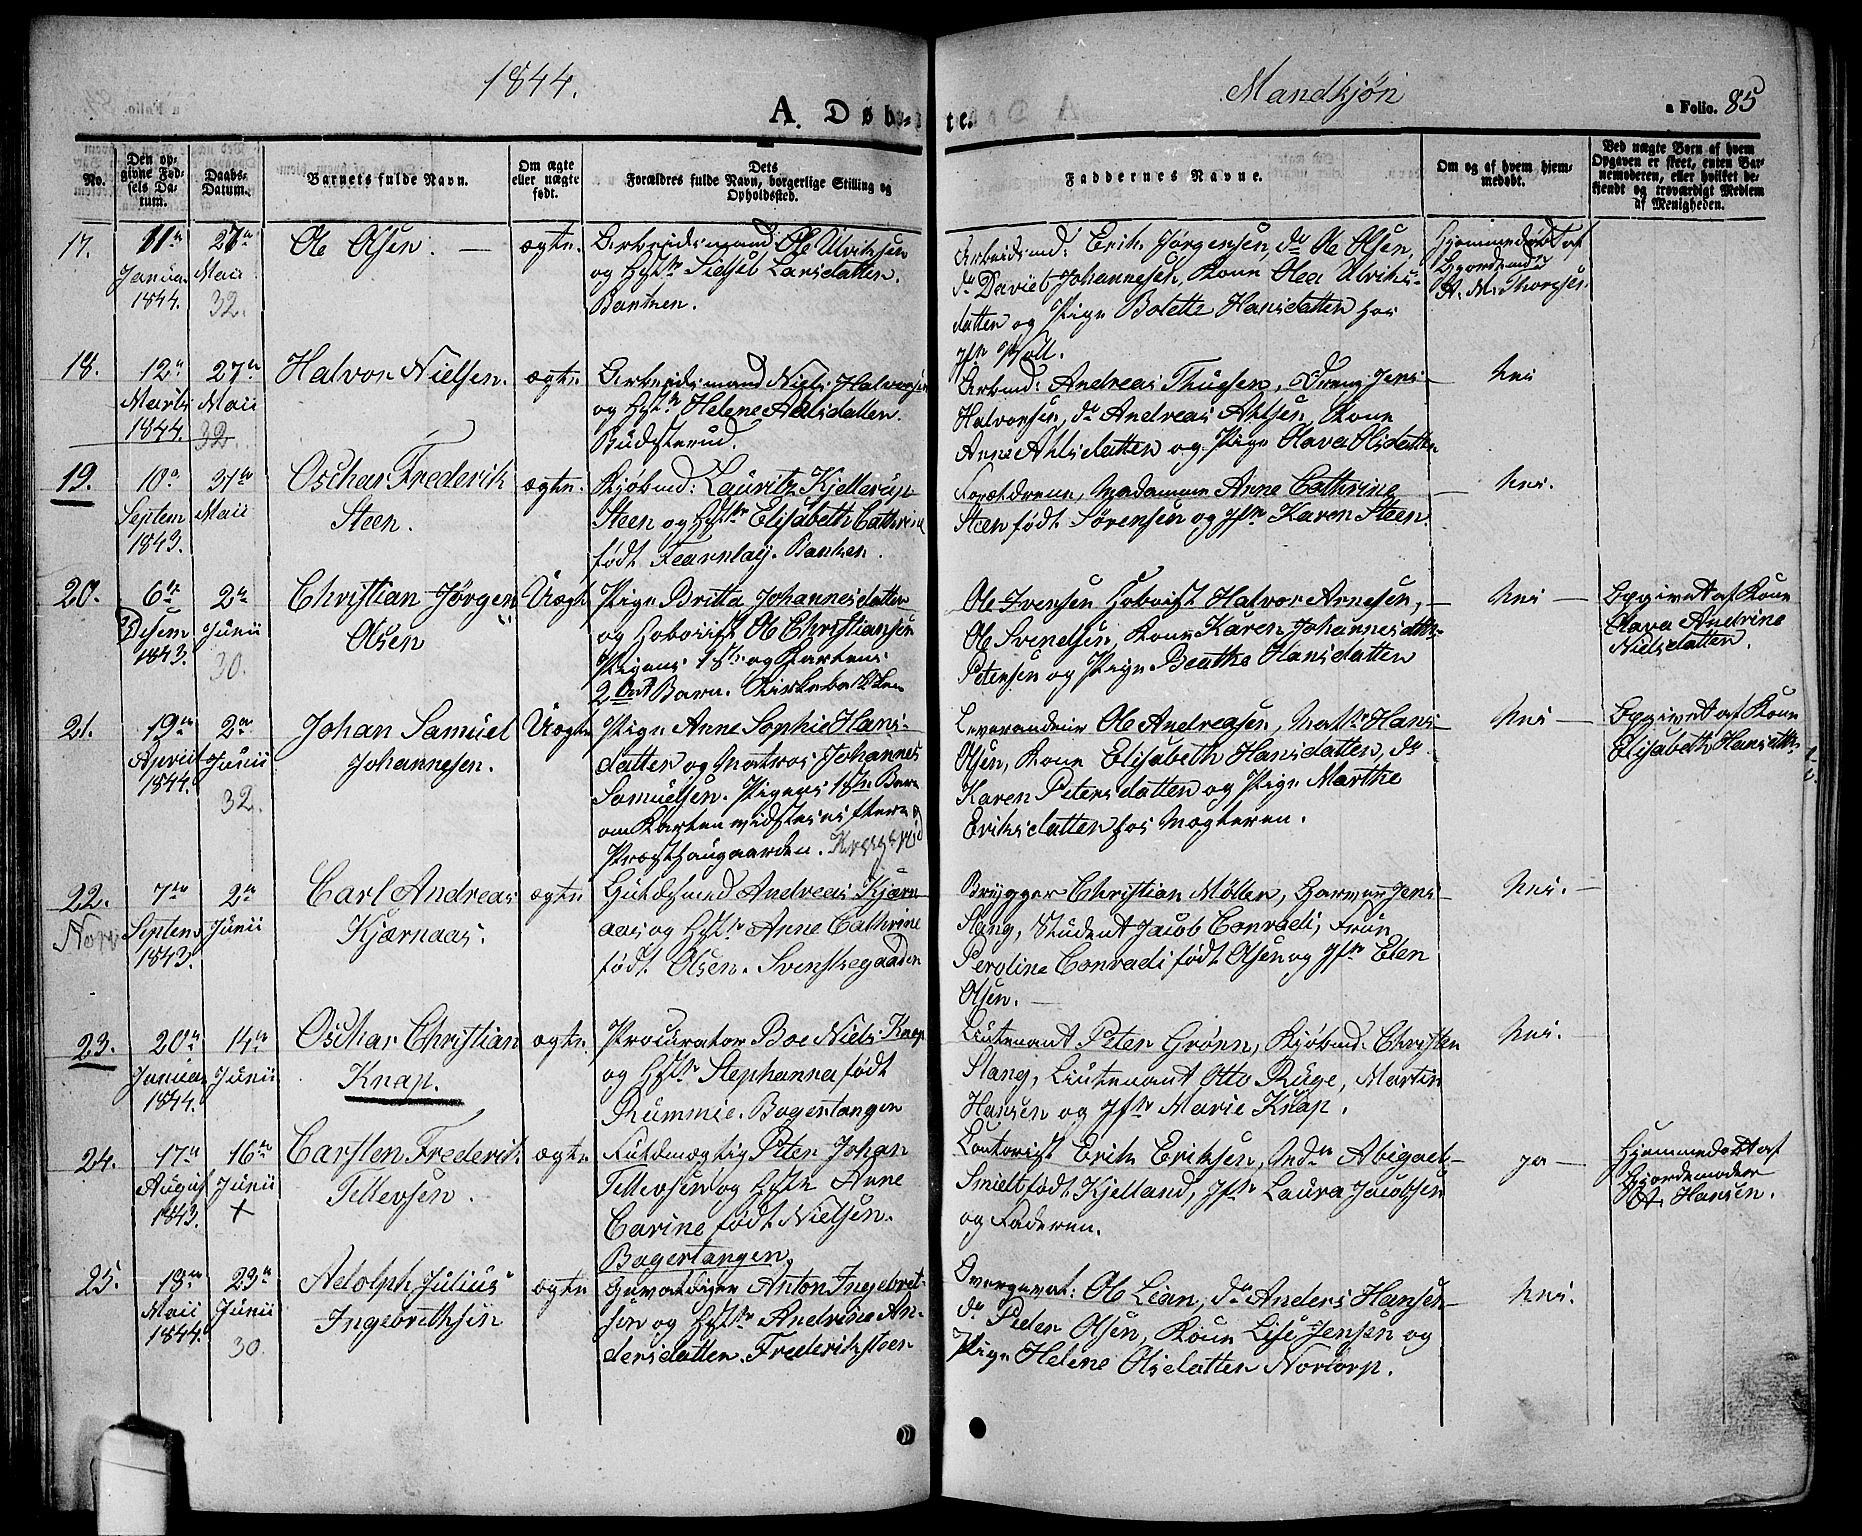 1844.
Mandkjøn
a Folio. 85
A. Døbte.
No.
Den opgivne Fødsels Datum.
Daabs-Datum.
Barnets fulde Navn.
Om ægte eller uægte født.
Dets Forældres fulde Navn, borgerlige Stilling og Opholdssted.
Faddernes Navne.
Om og af hvem hjemmedøbt.
Ved uægte Børn af hvem Opgaven er skeet, enten Barnemoderen, eller hvilket bekjendt og troværdigt Medlem af Menigheden.
17.
11te
Januar
1844.
27de
Maii
32.
Ole Olsen.
ægte.
Arbeidsmand Ole Ulriksen
og Hst. Sielse Larsdatter.
Banken.
Arbeidsmd: Erik Jørgensen, do Ole Olsen,
do David Johannesen, Kone Olea Ulriks-
datter og Pige Bolette Hansdatter hos
Hjemmedøbt af
Gjordemod.
A. M. Thorgsen
18.
12te
Marts
1844.
27de
Maii
32.
Halvor Nielsen.
ægte.
Arbeidsmand Niels Halvorsen
og Hst. Helene Nilsdatter.
Budsterud.
Arbmd: Andreas Thuesen, Dreng Jens
Halvorsen, do Andreas Ahlsen, Kone
Anne Ahlsdatter og Pige Olava Olsdatter
Nei
19.
10de
Septem
1843.
31te
Maii
Oschar Frederik
Steen.
ægte.
Kjøbmd: Lauritz Kjellerup
Steen og Hst. Elisabeth Cathrine
født Fearnlay. Banken.
Forældrene, Madamme Anne Cathrine
Steen født Sørensen og Jfr Karen Steen.
Nei.
20.
6te
Desem
1843.
2den
Junii
30.
Christian Jørgen
Olsen
Uægte
Pige Britta Johannesdatter
og Hoboist Ole Christiansen
Pigens 1ste og Karlens
2det Barn. Kirkebakken
Ole Ivensen Hoboist Halvor Arnesen,
Ole Svendsen, Kone Karen Johannesdtr.
Petersen og Pige Beathe Hansdatter
Nei
Opgivet af Kone
Olava Andrine
Nielsdatter.
21.
19de
April
1844.
2den
Junii
32.
Johan Samuel
Johannesen.
Uægte
Pige Anne Sophie Hans-
datter og Matros Johannes
Samuelsen. Pigens 1ste Barn
om Karlen vidstes ei flere
Præsthaugaarden.
Leverandeur Ole Andreasen, Matr. Hans
Olsen, Kone Elisabeth Hansdatter, do
Karen Petersdatter og Pige Marthe
Eriksdatter hos Vægteren.
Nei
Opgivet af Kone
Elisabeth Hansdtr.
22.
Norv
7de
Septem
1843.
2den
Junii
Carl Andreas
Kjærnaas.
ægte.
Guldsmed Andreas Kjærn-
aas og Hst. Anne Cathrine
født Olsen. Svenskegaarden
Brygger Christian Møller, Garver Jens
Stang, Student Jacob Conradi, Frue
Peroline Conradi født Olsen og Jfr Elen
Olsen.
Nei.
23.
20de
Januar
1844.
14de
Junii
Oschar Christian
Knap.
ægte.
Procurator Boe Niels Knap
og Hst. Stephanna født
Rummie. Bogertangen
Lieutenant Peter Grønn, Kjøbmd. Christen
Stang, Lieutenant Otto Ruge, Martin
Hansen og Jfr Marie Knap.
Nei.
24.
17de
August
1843.
16de
Junii
+
Carsten Frederik
Tellevsen.
ægte.
Fuldmægtig Peter Johan
Tellevsen og Hst. Anne
Carine født Nielsen.
Bogertangen.
Contorist Erik Eriksen, Md. Abigael
Smielt født Kjelland, Jfr Laura Jacobsen
og Faderen.
ja
Hjemmedøbt af
Gjordemoder
A. Hansen.
25.
13de
Maii
1844.
23de
Junii
30.
Adolph Julius
Ingebrethsen
ægte
Gevaldiger Anton Ingebret-
sen og Hst. Andrine An-
dersdatter. Frederiksteen
Overgevat: Ole Lian, do Anders Hansen
do Peder Olsen, Kone Lise Jensen og
Pige Helene Olsdatter Nortorp.
Nei.